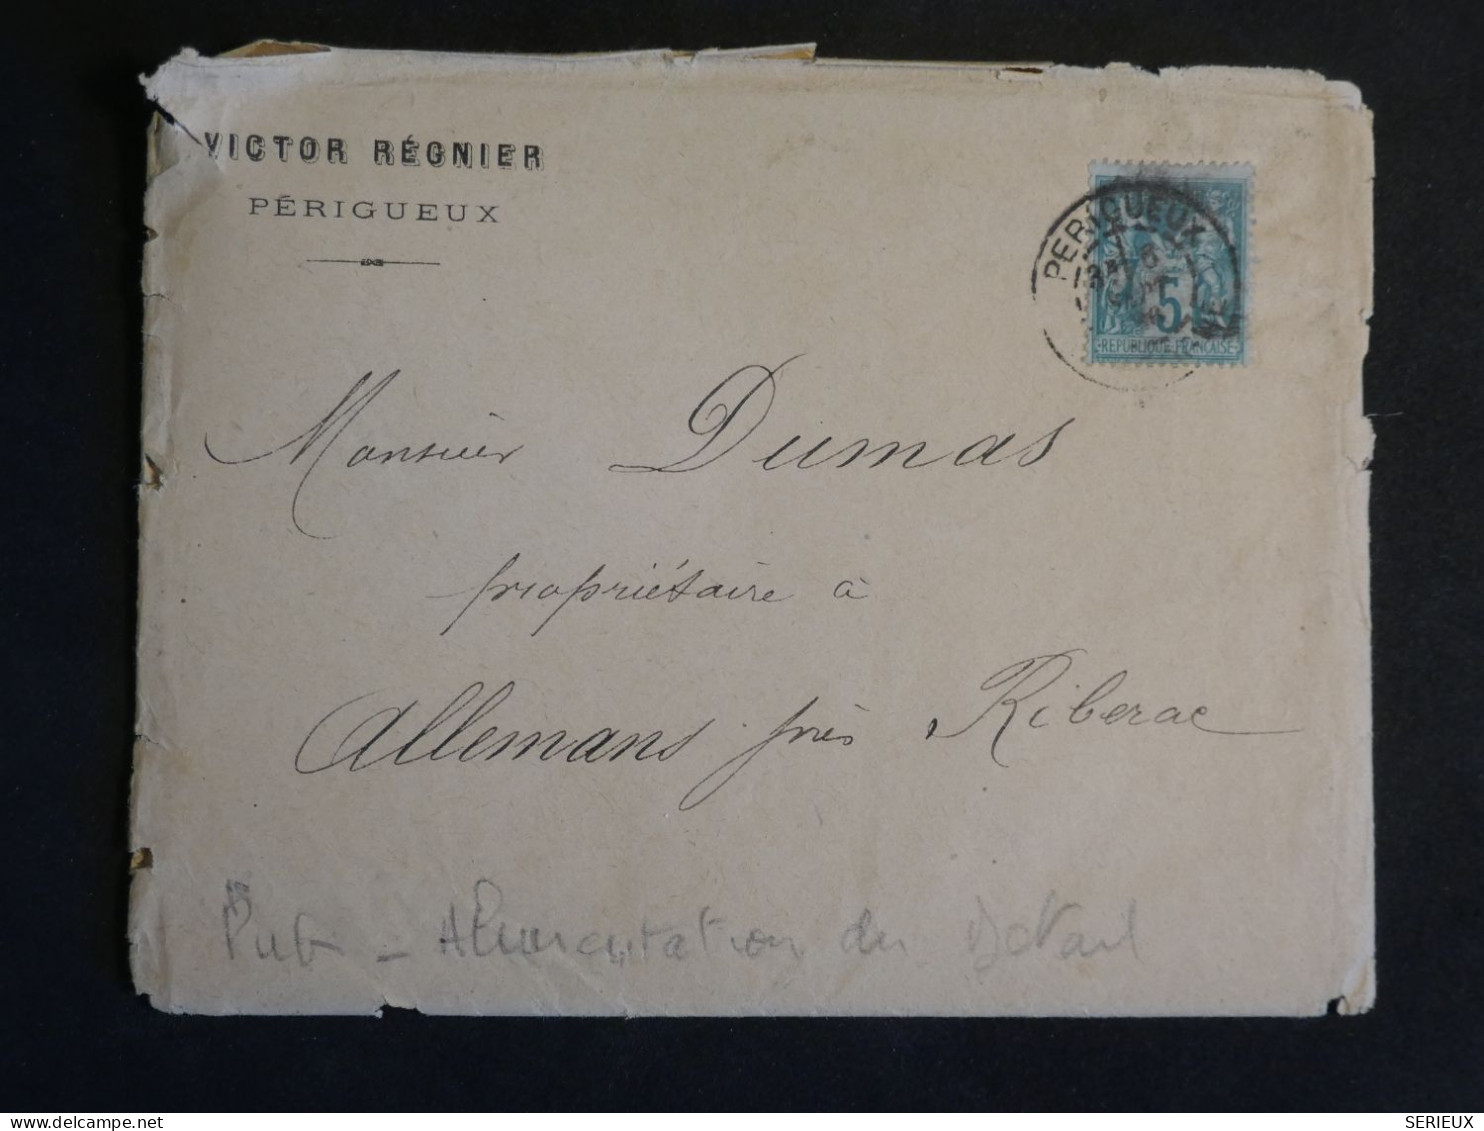 VICTOR RÉGNIER
PÉRIGUEUX
PERIGUEUX
5
REPUBLIQUE FRANÇAISE
Monsieur Dumas
propriétaire à
Allemans près Riberac
Pub - Alimentation du Bétail
SERIEUX